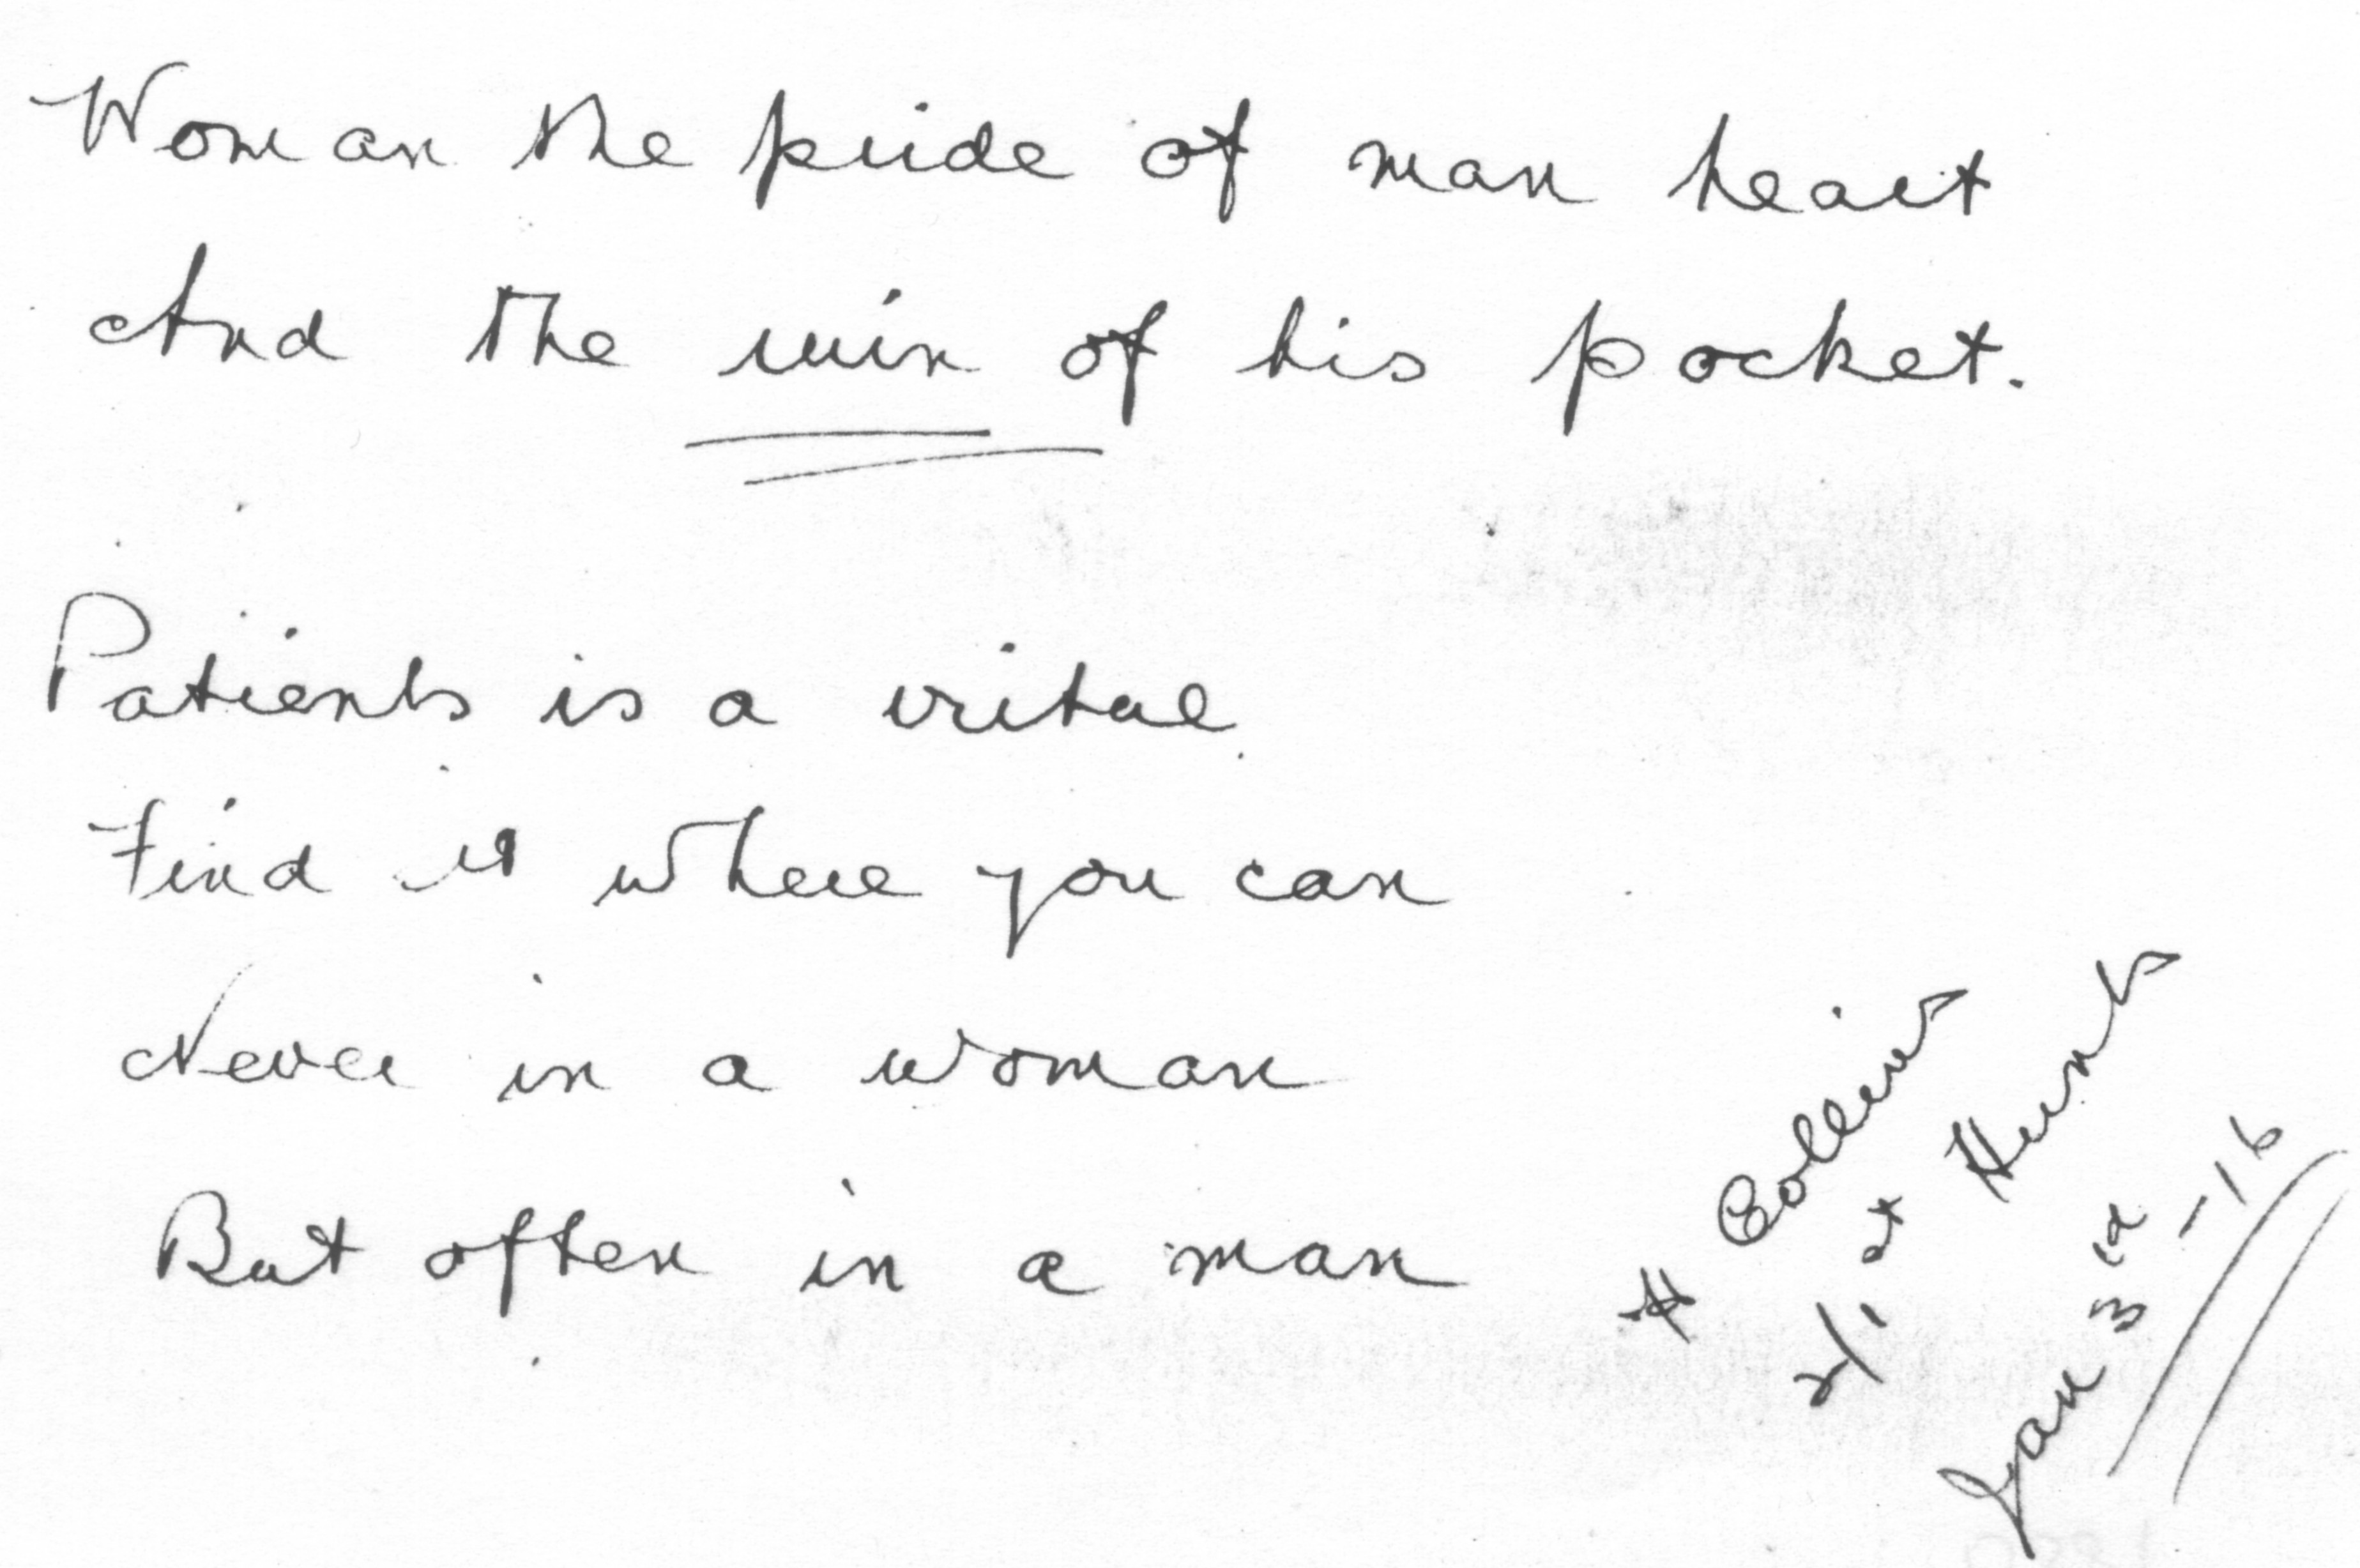 Woman the pride of man heart
And the ruin of his pocket.
Patients is a vritue
Find it where you can
Never in a woman
But often in a man
H Collins
2/1st Hunts
Jan 3rd -16